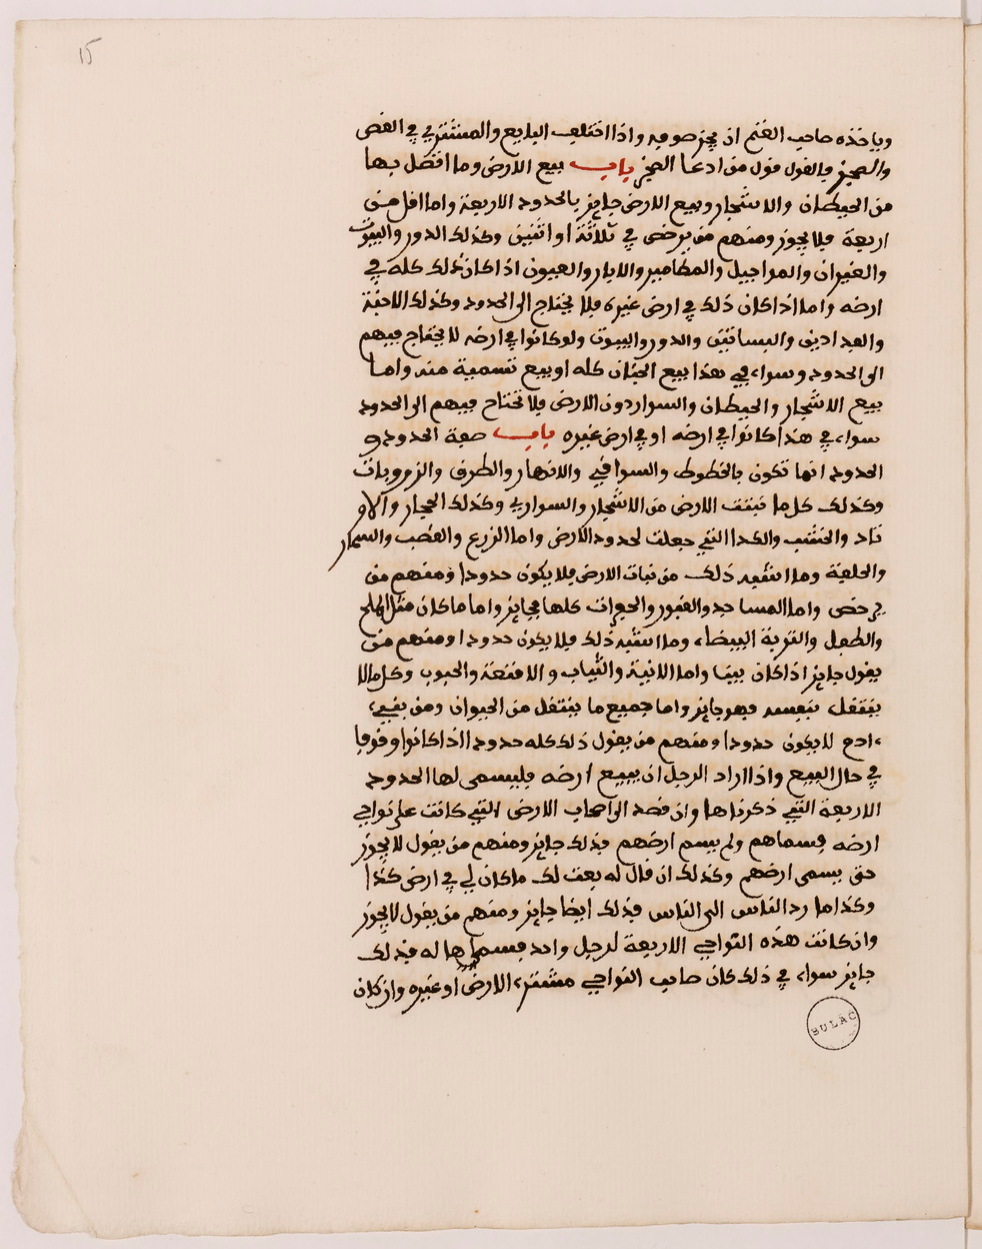 15
وياخذه صاحب الغنم ان يجز صوفه واذا اختلف البايع والمشتري في الغص
والصحيز فالقول قول من ادعا الصحيز باب بيع الارض وما اتصل بها
من الحيطان والاشجار وبيع الارض جايز بالحدود الاربعة واما اقل من
اربعة فلا يجوز ومنهم من يرخص في ثلاثة او اثنين وكذلك الدور والبيوت
والغيران والمواجيل والمطامير والابار والعيون اذا كان ذلك كله في
ارضه واما اذا كان ذلك في ارض غيره فلا يحتاج الى الحدود وكذلك الاجنة
والفدادين والبساتين والدور والبيوت ولو كانوا في ارضه لا يحتاج فيهم
الى الحدود وسواء في هذا بيع الجنان كله او بيع تسمية منه واما
بيع الاشجار والحيطان والسوار دون الارض فلا تحتاج فيهم الى الحدود
سواء في هذا كانوا في ارضه او في ارض غيره باب صفة الحدود و
الحدود انما تكون بالخطوط والسواقي والانهار والطرق والزروبات
وكذلك كل ما نبتت الارض من الاشجار والسواري وكذلك الحجار والاو
تاد والخشب والكدا التي جعلت لحدود الارض واما الزرع والقصب والسمار
والحلفة وما اشبه ذلك من نبات الارض فلا يكون حدودا ومنهم من
يرخص واما المساجد والقبور والحجرات كلها فجايز واما ما كان مثل الملح
والطفل والتربة البيضاء وما اشبه ذلك فلا يكون حدودا ومنهم من
يقول جايز اذا كان بينا واما الانية والثياب والامتعة والحبوب وكل ما لا
ينتقل بنفسه فهو جايز واما جميع ما ينتقل من الحيوان ومن بني
ءادم لا يكون حدودا ومنهم من يقول ذلك كله حدودا اذا كانوا وقوفا
في حال البيع واذا اراد الرجل ان يبيع ارضه فليسمى لها الحدود
الاربعة التي ذكرناها وان قصد الى اصحاب الارض التي كانت على نواحي
ارضه فسماهم ولم يسم ارضهم فذلك جايز ومنهم من يقول لا يجوز
حتى يسمى ارضهم وكذلك ان قال له بعت لك ما كان لي في ارض كذا
وكذا ما رد الناس الى الناس فذلك ايضا جايز ومنهم من يقول لا يجوز
وان كانت هذه النواحي الاربعة لرجل واحد فسماها له فذلك
جايز سواء في ذلك كان صاحب النواحي مشتر الارض او غيره وان كان
BULAC